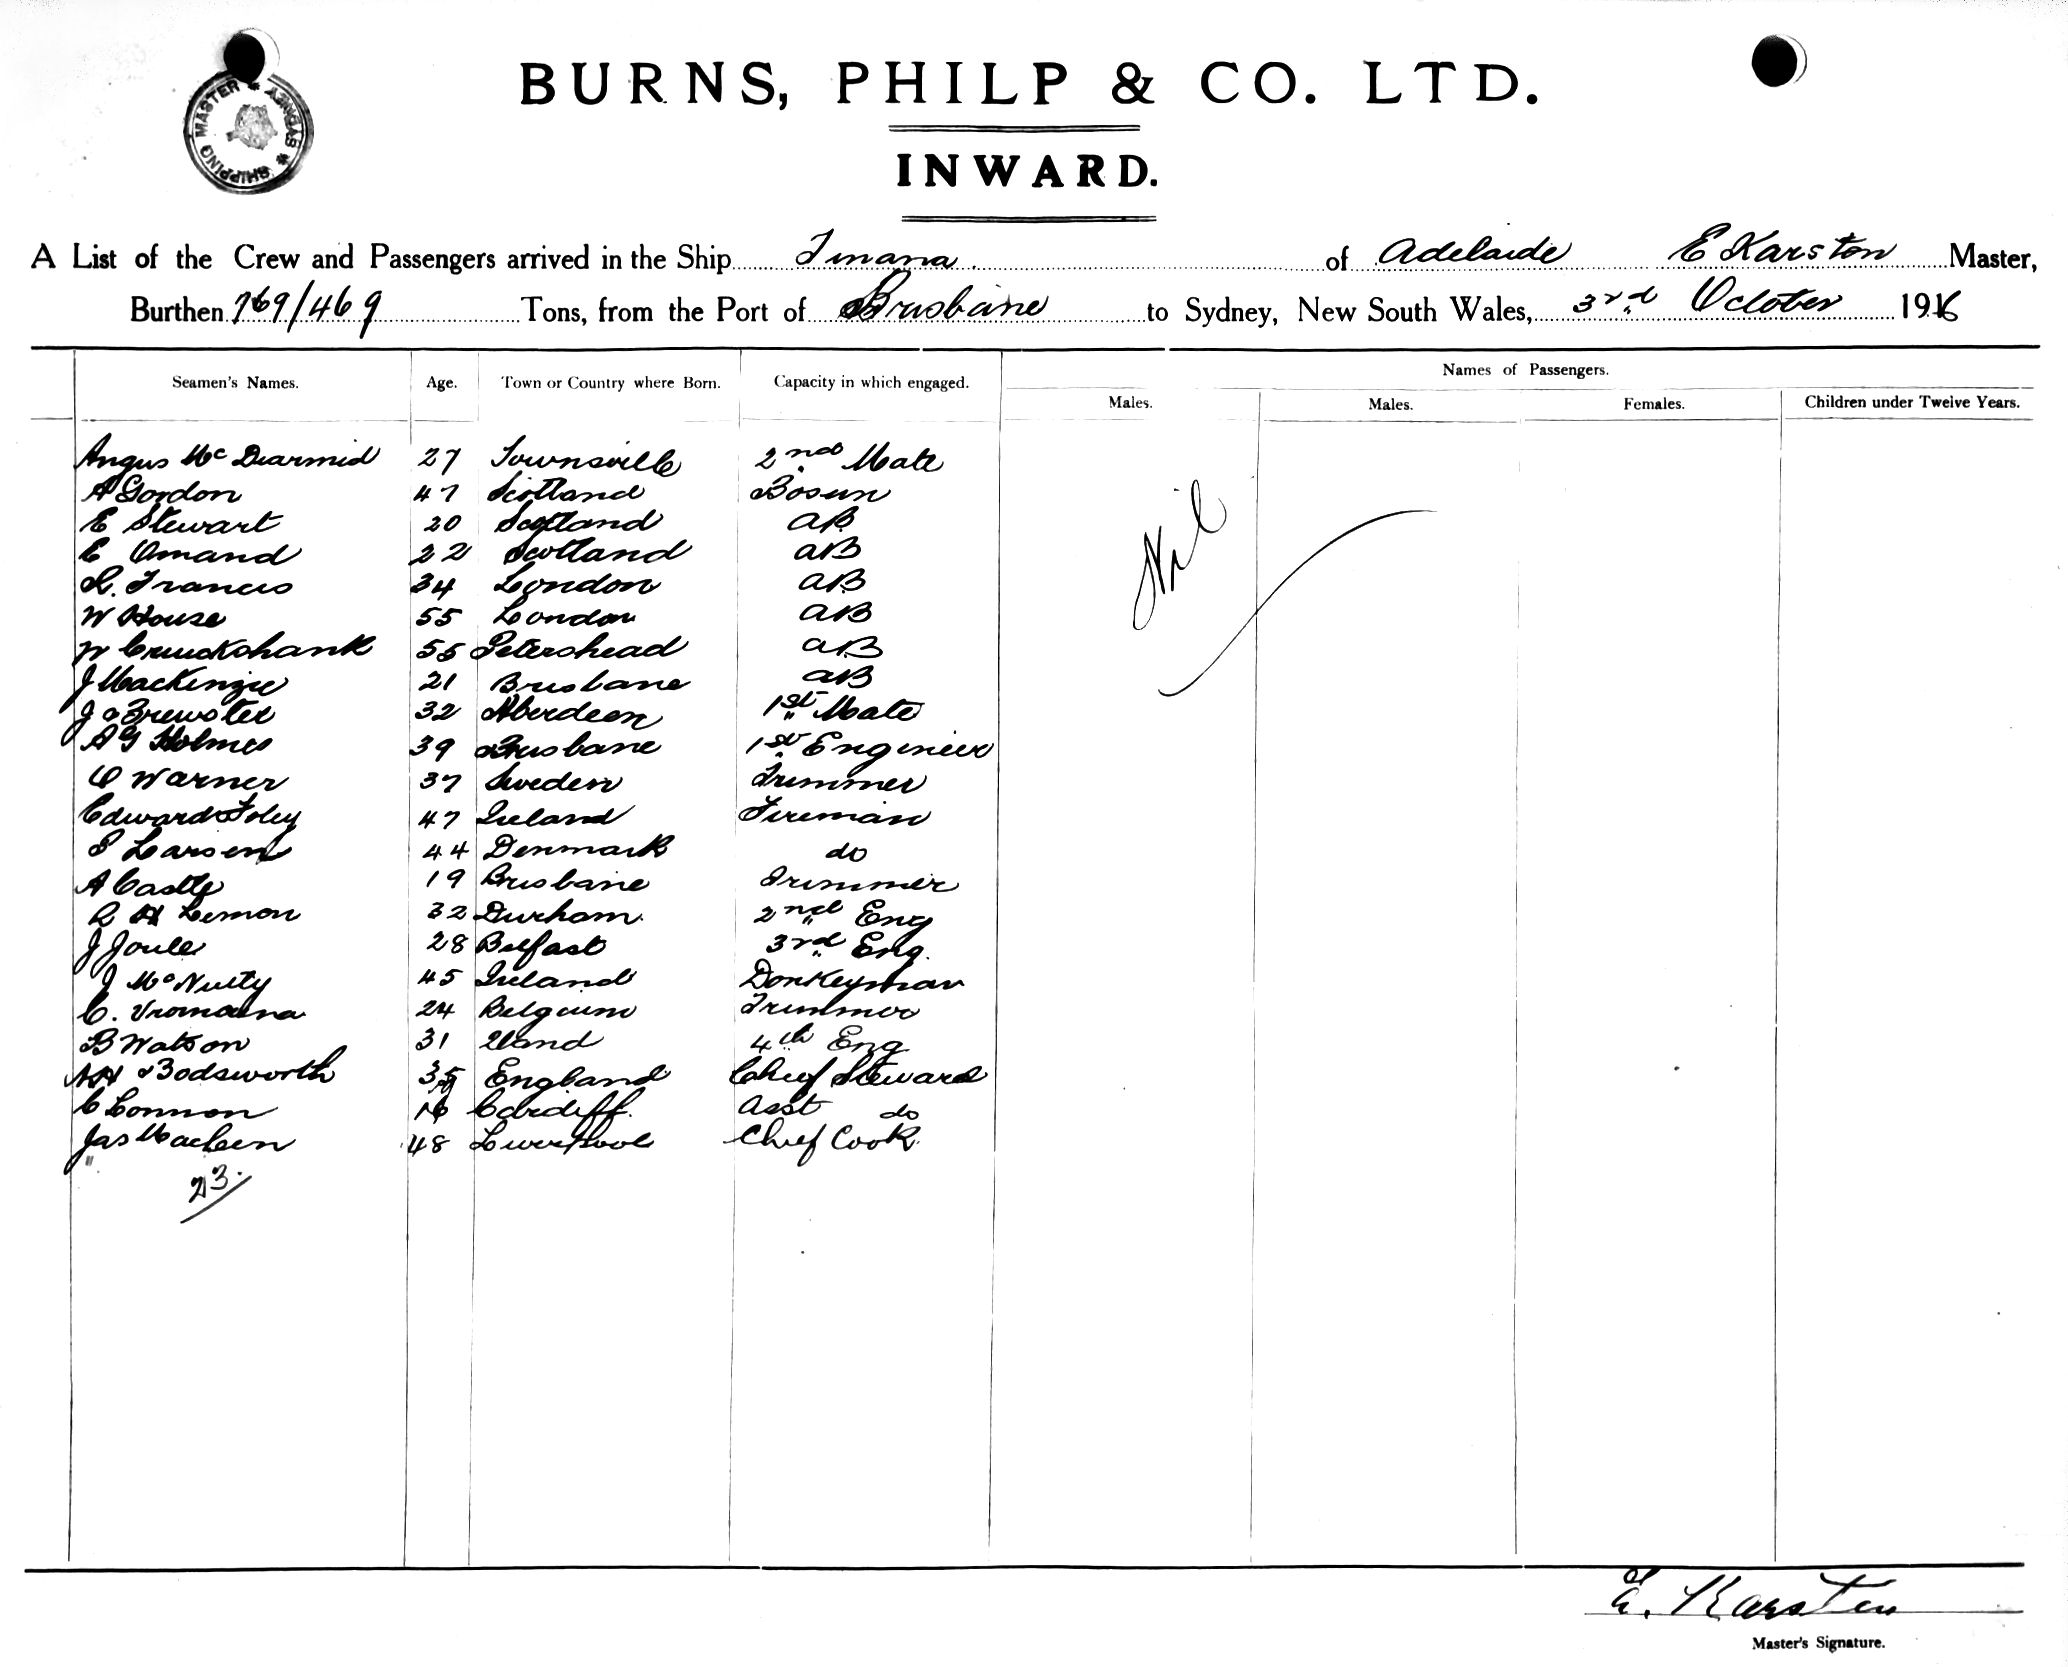 SHIPPING MASTER * SYDNEY *
BURNS, PHILP & CO. LTD.
INWARD.
A List of the Crew and Passengers arrived in the Ship Timana of Adelaide E Karsten Master,
Burthen 769/469 Tons, from the Port of Brisbane to Sydney, New South Wales, 3rd October 1916
Names of Passengers.
Seamen's Names. Age. Town or Country where Born. Capacity in which engaged. Males. Males. Females. Children under Twelve Years.
Angus McDiarmid 27 Townsville 2nd Mate
A Gordon 47 Scotland Bosun
E Stewart 20 Scotland AB
E Omand 22 Scotland AB
Francis 34 London AB
W House 55 London AB
W Cruickshank 55 Peterhead AB
J MacKenzie 21 Brisbane AB
J Brewster 32 Aberdeen 1st Mate
A G Holmes 39 Brisbane 1st Engineer
O Warner 37 Sweden Trimmer
Edward Foley 47 Ireland Fireman
S Larsen 44 Denmark do
A Castle 19 Brisbane Trimmer
R H Lemon 32 Durham 2nd Eng
J Joule 28 Belfast 3rd Eng.
J McNulty 45 Ireland Donkeyman
C. 24 Belgium Trimmer
B Watson 31 4th Eng
Bodsworth 35 England Chief Steward
C Connon 16 Cardiff. Asst do
Jas 48 Liverpool Chief Cook
23.
Nil
E. Karsten
Master's Signature.